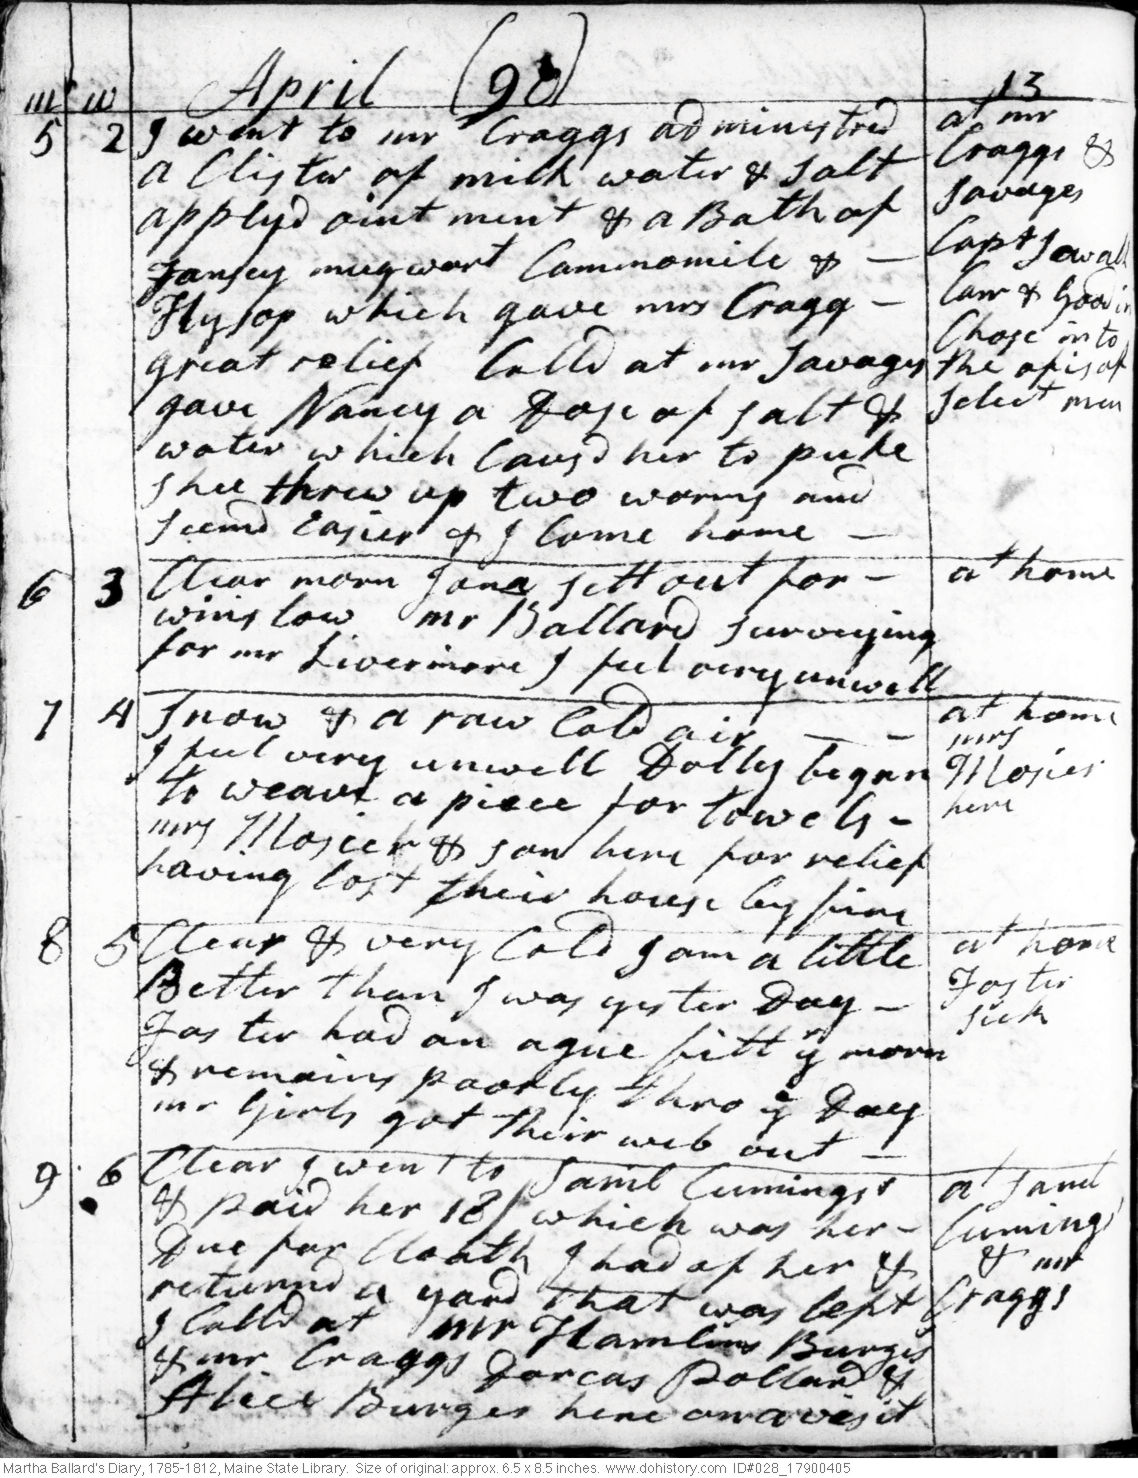 April (90)
m w 13
5 2 I went to mr Craggs administred
a Clister of milk water & salt
applyd ointment & a Bath of
Tansey mugwort Cammomile & —
Hysop which gave mrs Cragg —
great relief Calld at mr Savages
gave Nancy a Dose of salt &
water which Causd her to puke
shee threw up two worms and
seemd Easier & I Came home —
at mr
Craggs &
Savages
Capt Sewall
Carr & Goodin
Chose in to
the ofis of
Select men
6 3 Clear morn Jona sett out for —
winslow mr Ballard surveying
for mr Livermore I feel very unwell
at home
7 4 Snow & a raw Cold air — —
I feel very unwell Dolly began
to weave a piece for towels —
mrs Mosier & son here for relief
having lost their house by fire
at home
mrs
Mosier
here
8 5 Clear & very Cold I am a little
Better than I was yester Day —
Foster had an ague fitt ye morn
& remains poorly thro ye Day
mr Girls got their web out —
at home
Foster
sick
9 6 Clear I went to Saml Cumings
& paid her 18/ which was her —
Due for Cloath I had of her &
returnd a yard that was left
I Calld at mr Hamlins Burgis
& mr Craggs Dorcas Pollard &
Alice Burges here on a visit
at Saml
Cumings
& mr
Craggs
Martha Ballard's Diary, 1785-1812, Maine State Library. Size of original: approx. 6.5 x 8.5 inches. www.dohistory.com ID#028_17900405